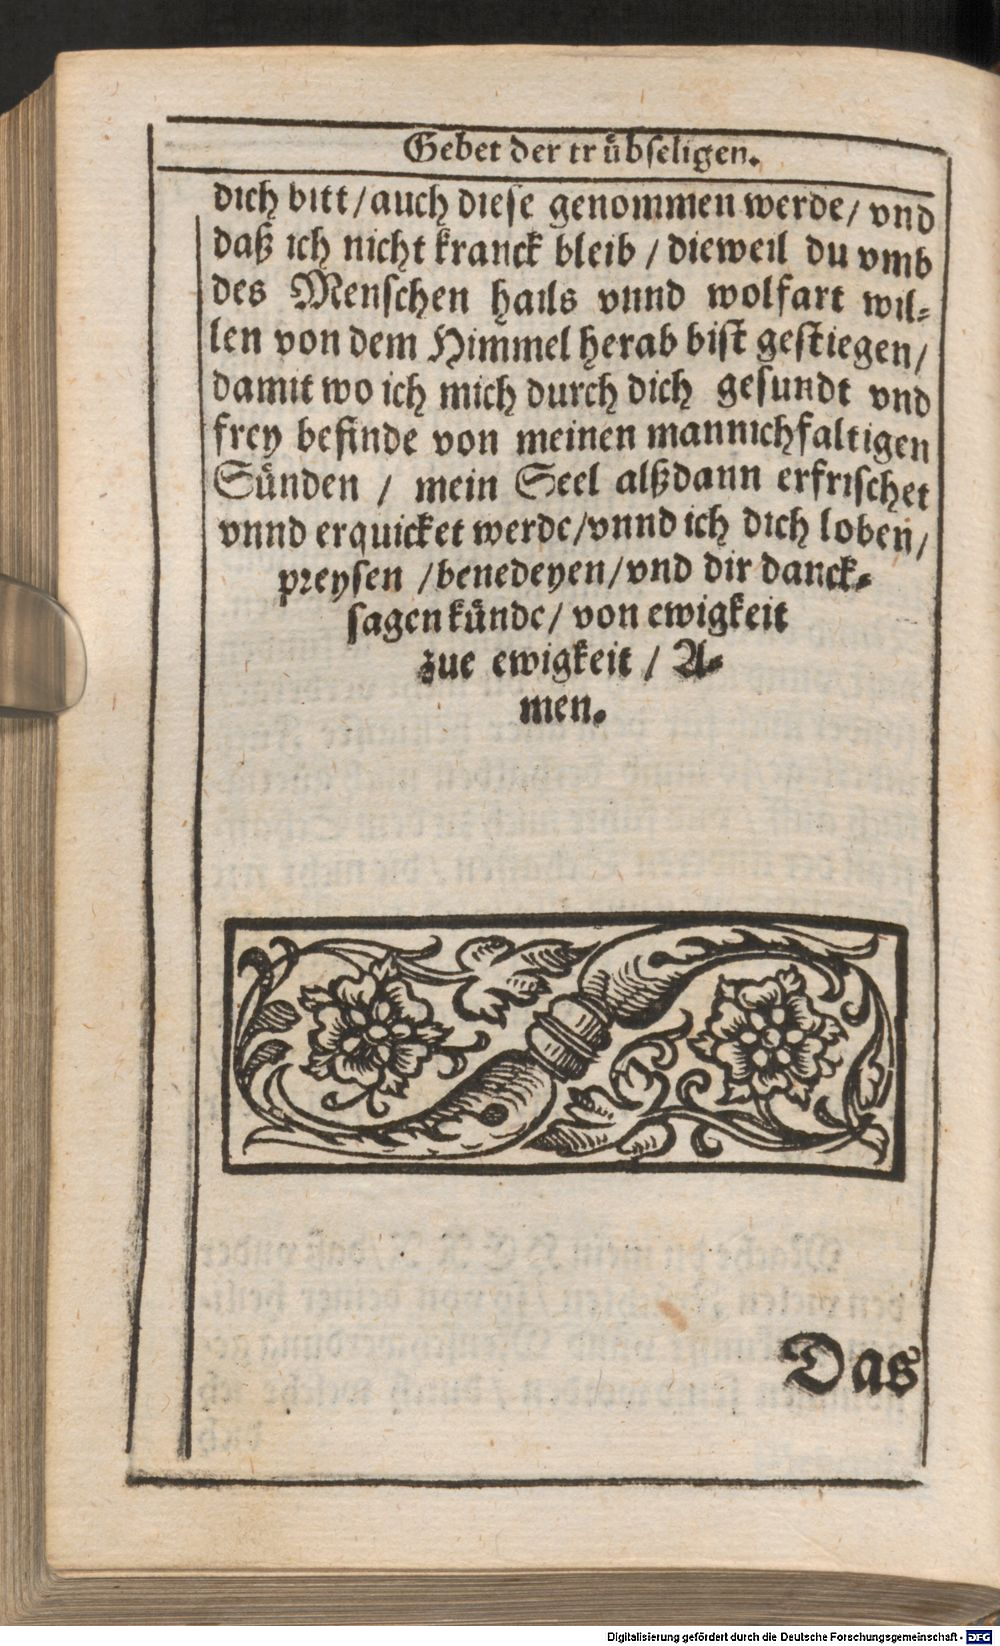 Gebet der trübseligen.
dich bitt / auch diese genommen werde / vnd
daß ich nicht kranck bleib / dieweil du vmb
des Menschen hails vnnd wolfart wil-
len von dem Himmel herab bist gestiegen /
damit wo ich mich durch dich gesundt vnd
frey befinde von meinen mannichfaltigen
Sünden / mein Seel alßdann erfrischet
vnnd erquicket werde / vnnd ich dich loben /
preysen / benedeyen / vnd dir danck-
sagen künde / von ewigkeit
zue ewigkeit / A-
men.
Das
Digitalisierung gefördert durch die Deutsche Forschungsgemeinschaft - DFG